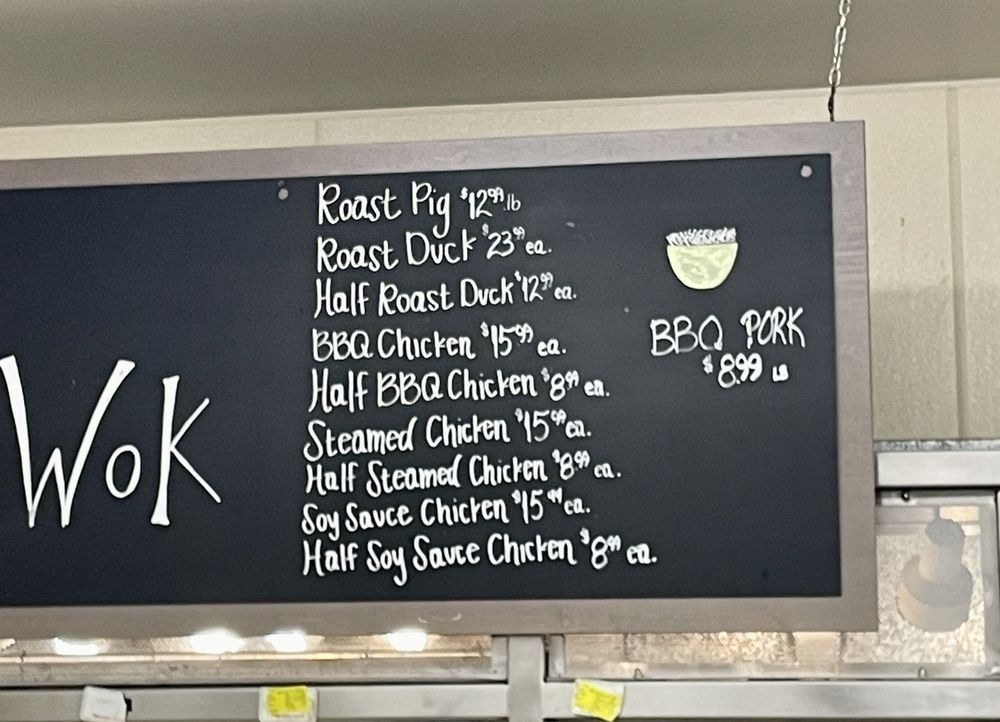 Wok
Roast Pig $12.99 lb
Roast Duck $23.99 ea.
Half Roast Duck $12.99 ea.
BBQ Chicken $15.99 ea.
Half BBQ Chicken $8.99 ea.
Steamed Chicken $15.99 ea.
Half Steamed Chicken $8.99 ea.
Soy Sauce Chicken $15.99 ea.
Half Soy Sauce Chicken $8.99 ea.
BBQ PORK
$8.99 LB